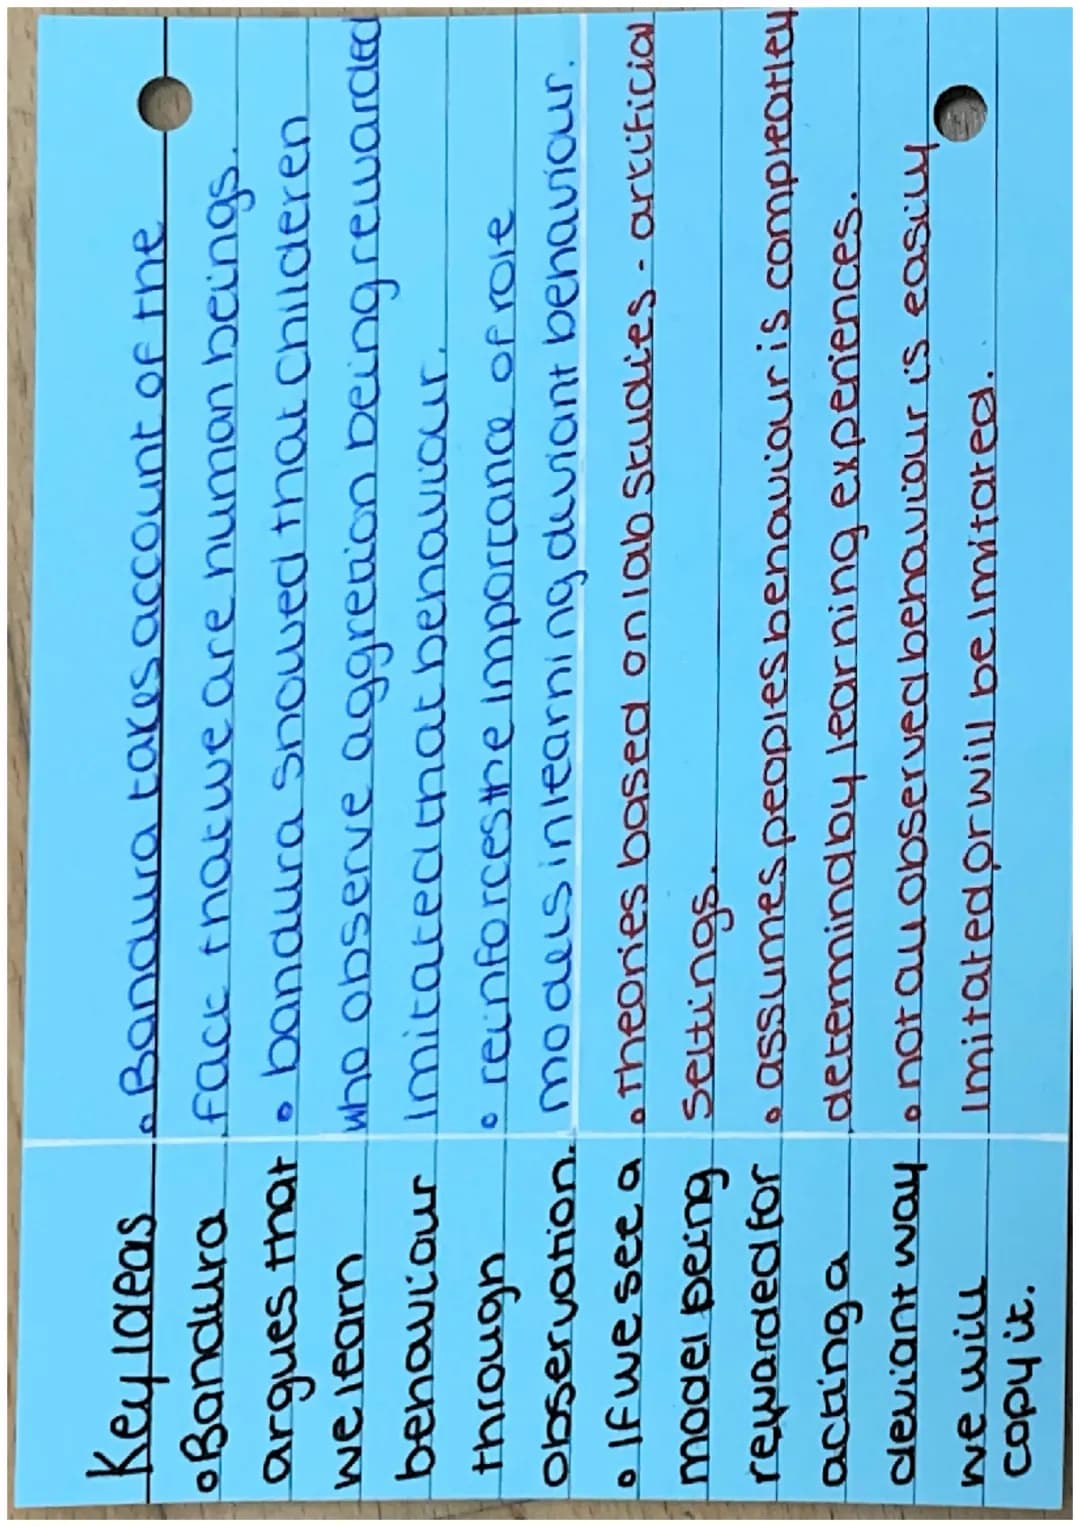 Key Ideas
• Bandura
argues that
we learn
behaviour
through
observation.
• If we see a
model being
rewarded for
acting a
deviant way
we will
copy it.
• Bandura takes account of the
fact that we are human beings.
• bandura showed that childeren
who observe aggretion being rewarded
imitated that behaviour.
• reinforces the importance of role
models in learning deviant behaviour.
• theories based on lab studies - artificial
settings.
• assumes peoples behaviour is compleatley
determind by learning experiences.
• not all observed behaviour is easily
imitated or will be imitated.